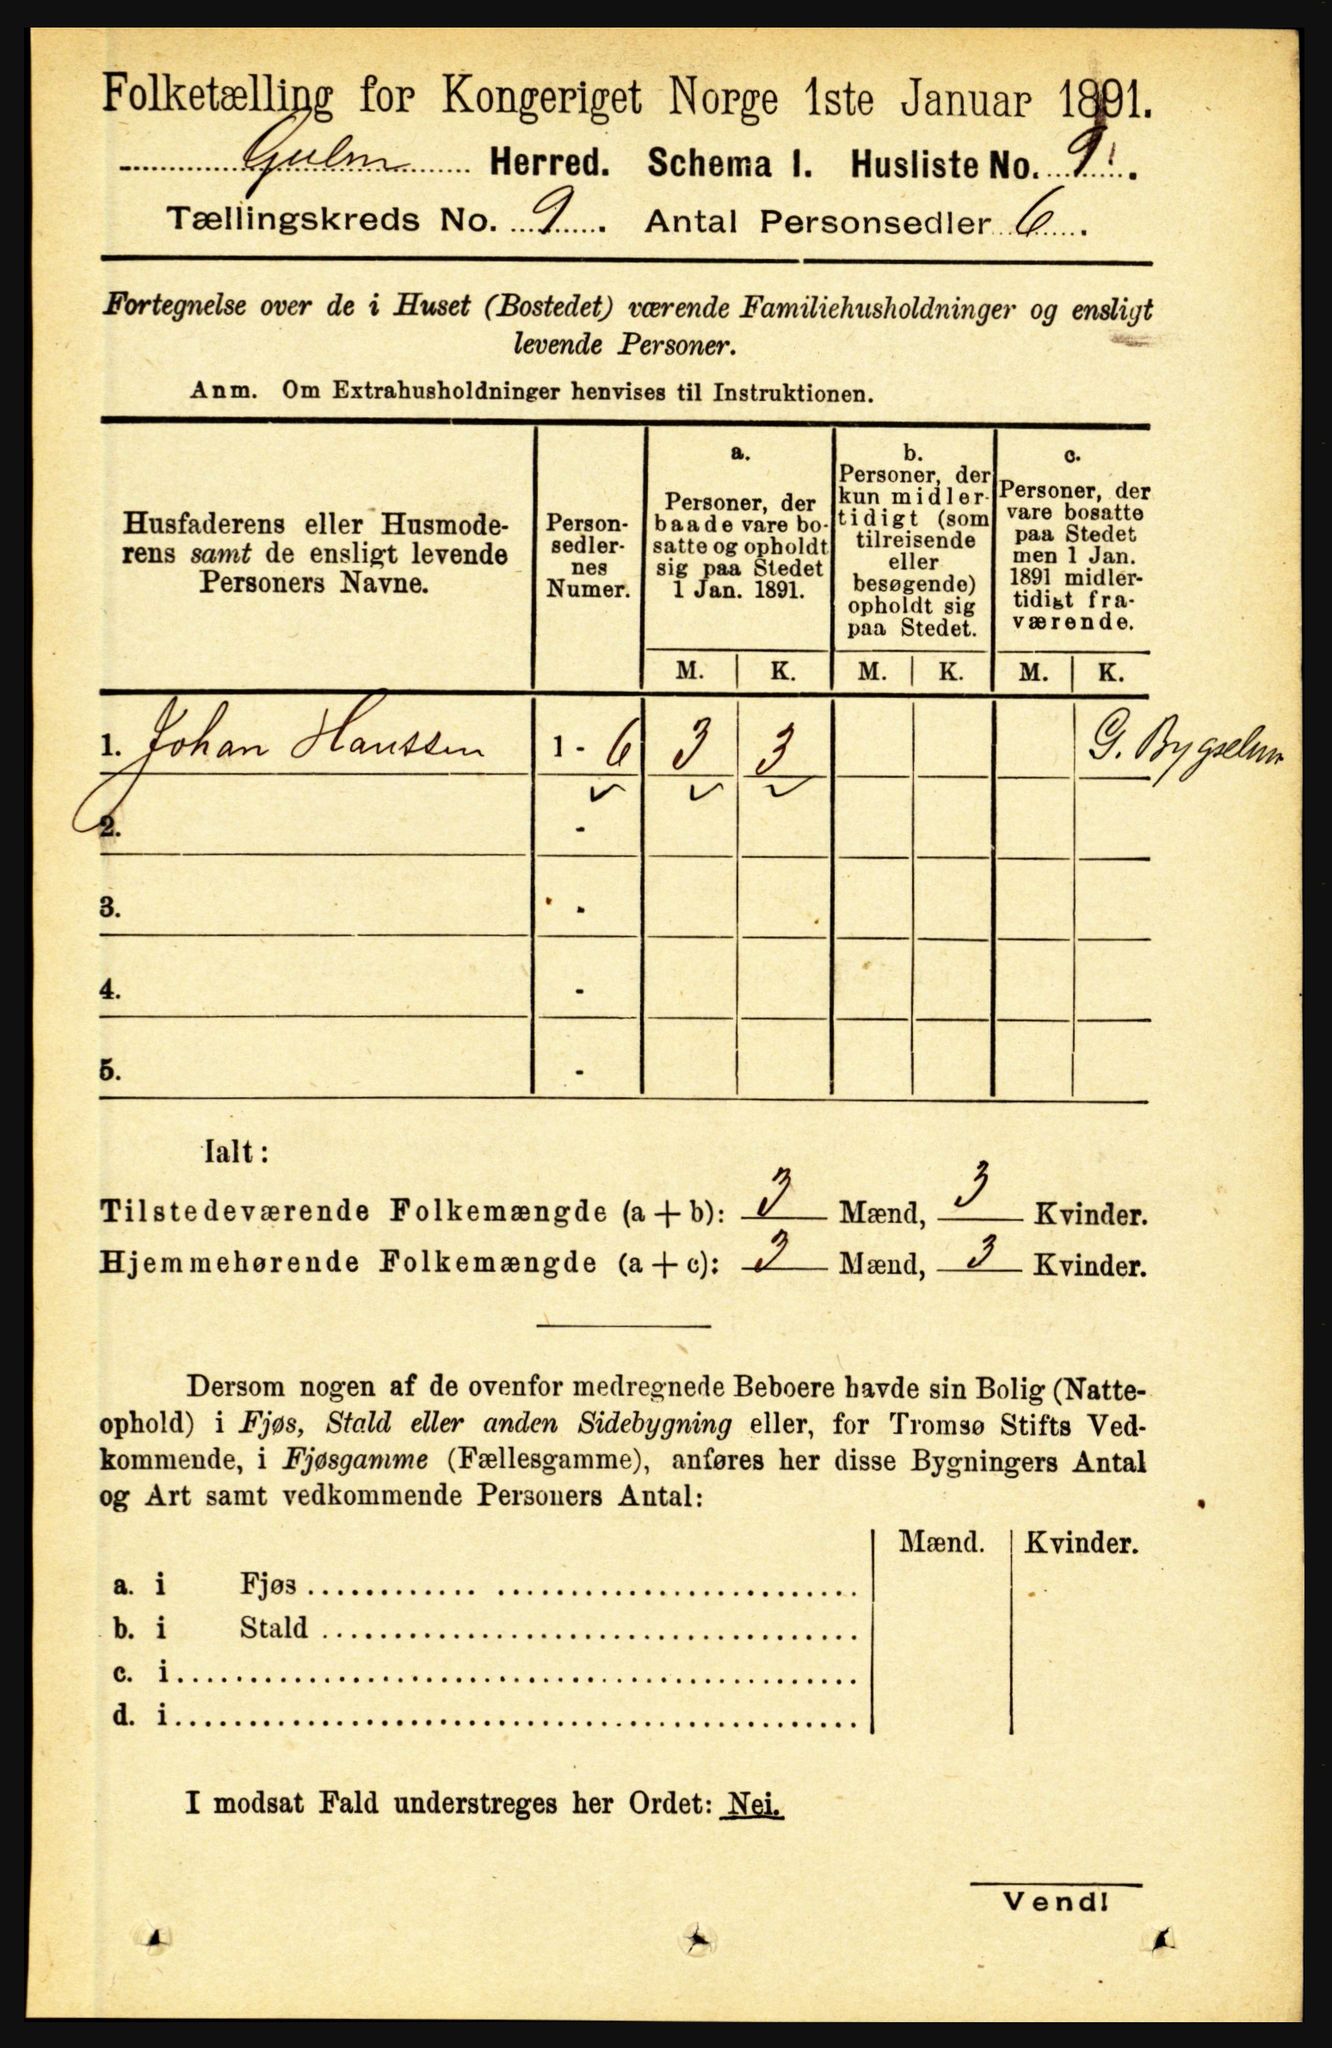 Folketælling for Kongeriget Norge 1ste Januar 1891.
Gulen Herred. Schema I. Husliste No. 9.
Tællingskreds No. 9. Antal Personsedler 6.
Fortegnelse over de i Huset (Bostedet) værende Familiehusholdninger og ensligt
levende Personer.
Anm. Om Extrahusholdninger henvises til Instruktionen.
Husfaderens eller Husmode-
rens samt de ensligt levende
Personers Navne.
Person-
sedler-
nes
Numer.
a.
Personer, der
baade vare bo-
satte og opholdt
sig paa Stedet
1 Jan. 1891.
b.
Personer, der
kun midler-
tidigt (som
tilreisende
eller
besøgende)
opholdt sig
paa Stedet.
c.
Personer, der
vare bosatte
paa Stedet
men 1 Jan.
1891 midler-
tidigt fra-
værende.
M. K. M. K. M. K.
1. Johan Hanssen 1 - 6 3 3 G. Bygselm
2. -
3. -
4. -
5. -
Ialt:
Tilstedeværende Folkemængde (a + b): 3 Mænd, 3 Kvinder.
Hjemmehørende Folkemængde (a + c): 3 Mænd, 3 Kvinder.
Dersom nogen af de ovenfor medregnede Beboere havde sin Bolig (Natte-
ophold) i Fjøs, Stald eller anden Sidebygning eller, for Tromsø Stifts Ved-
kommende, i Fjøsgamme (Fællesgamme), anføres her disse Bygningers Antal
og Art samt vedkommende Personers Antal:
Mænd. Kvinder.
a. i Fjøs
b. i Stald
c. i
d. i
I modsat Fald understreges her Ordet: Nei.
Vend!